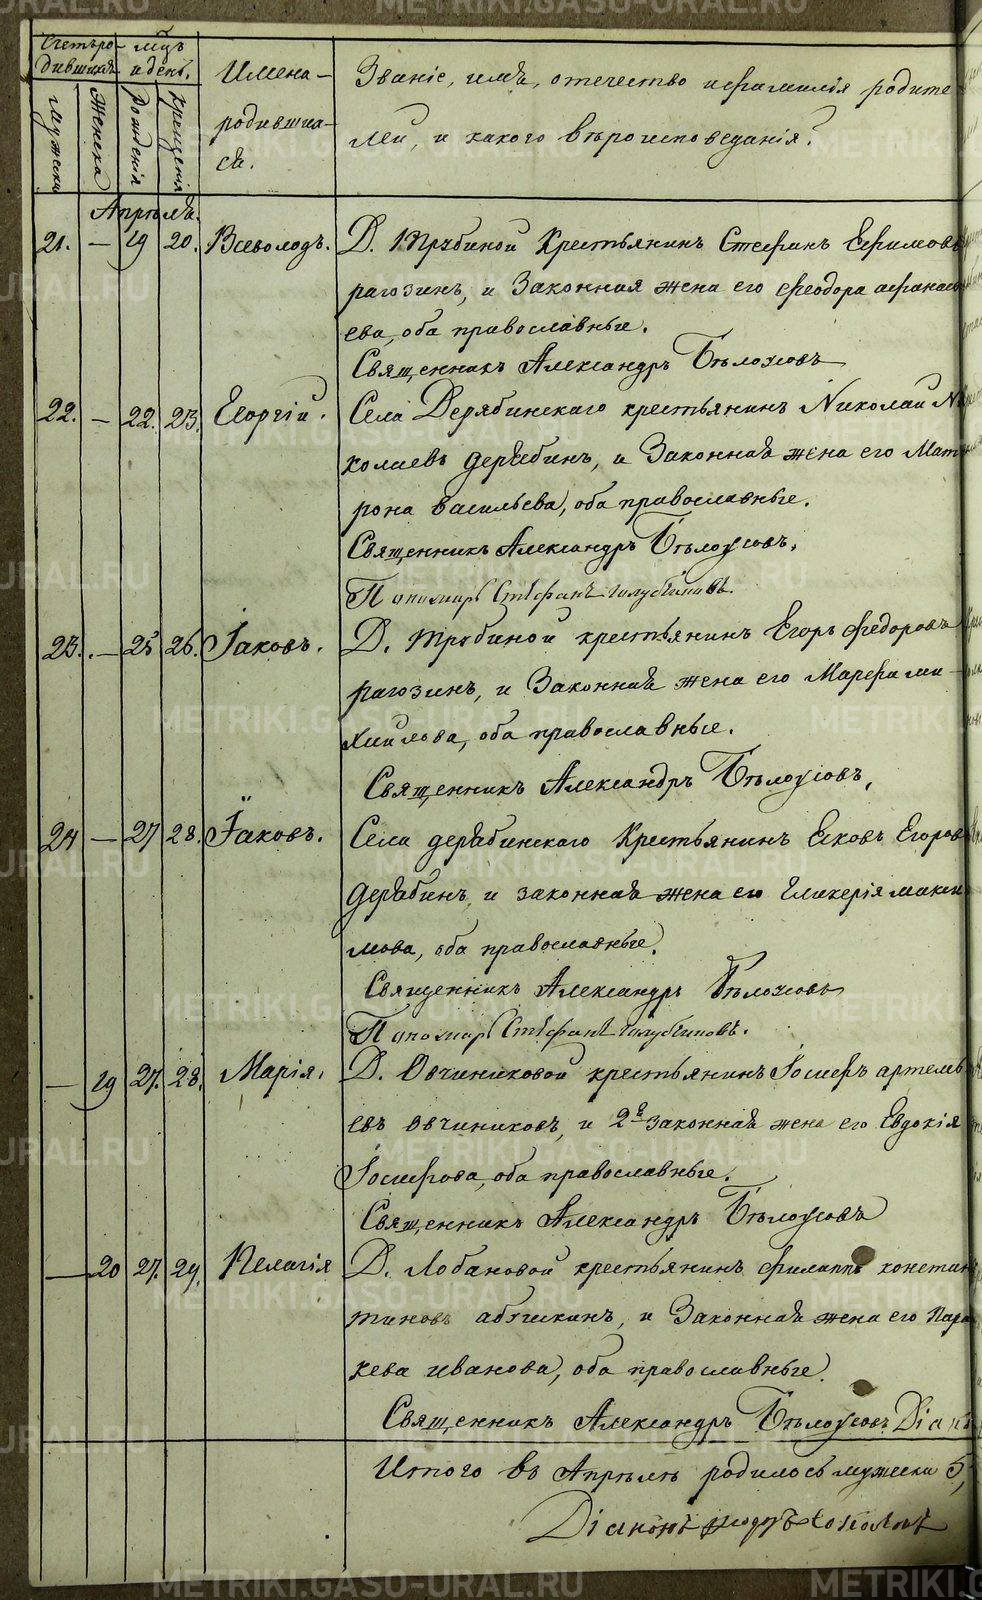 METRIKI.GASO-URAL.RU
Счетъ ро-
дившихся
мѣс.
и день.
Имена
родивших-
ся.
Званіе, имя, отечество и фамилія родите
лей, и какого вѣроисповеданія?
Мужеска
Женска
рожденія
крещенія
Апрѣль.
21. — 19 20. Всеволодъ. Д. Трубиной крестьянинъ Стефанъ Ефимовъ
рагозинъ, и Законная жена его феодора афанась
ева, оба православные.
Священникъ Александръ Бѣлоусовъ
22. — 22. 23. Георгій. Села Дерябинскаго крестьянинъ Николай Ни
колаевъ дерябинъ, и Законная жена его Мат
рона васильева, оба православные.
Священникъ Александръ Бѣлоусовъ.
Пономарь Стефанъ
23. — 25 26. Іаковъ. Д. Трубиной крестьянинъ Егоръ федоровъ
рагозинъ, и Законная жена его Марфа ми-
хайлова, оба православные.
Священникъ Александръ Бѣлоусовъ.
24 — 27 28. Іаковъ. Села дерябинскаго Крестьянинъ Егоровъ
дерябинъ, и законная жена его Гликерія макси
мова, оба православные.
Священникъ Александръ Бѣлоусовъ
Пономарь Стефанъ
— 19 27. 28. Марія. Д. Овчиниковой крестьянинъ Іосифъ артемь
евъ овчиниковъ, и 2я законная жена его Евдокія
Іосифова, оба православные.
Священникъ Александръ Бѣлоусовъ
— 20 27. 29. Пелагія Д. Лобановой крестьянинъ филиппъ констан
тиновъ и Законная жена его Пара
кева иванова, оба православные.
Священникъ Александръ Бѣлоусовъ.
Итого въ Апрѣлѣ родилось мужеска
Діаконъ